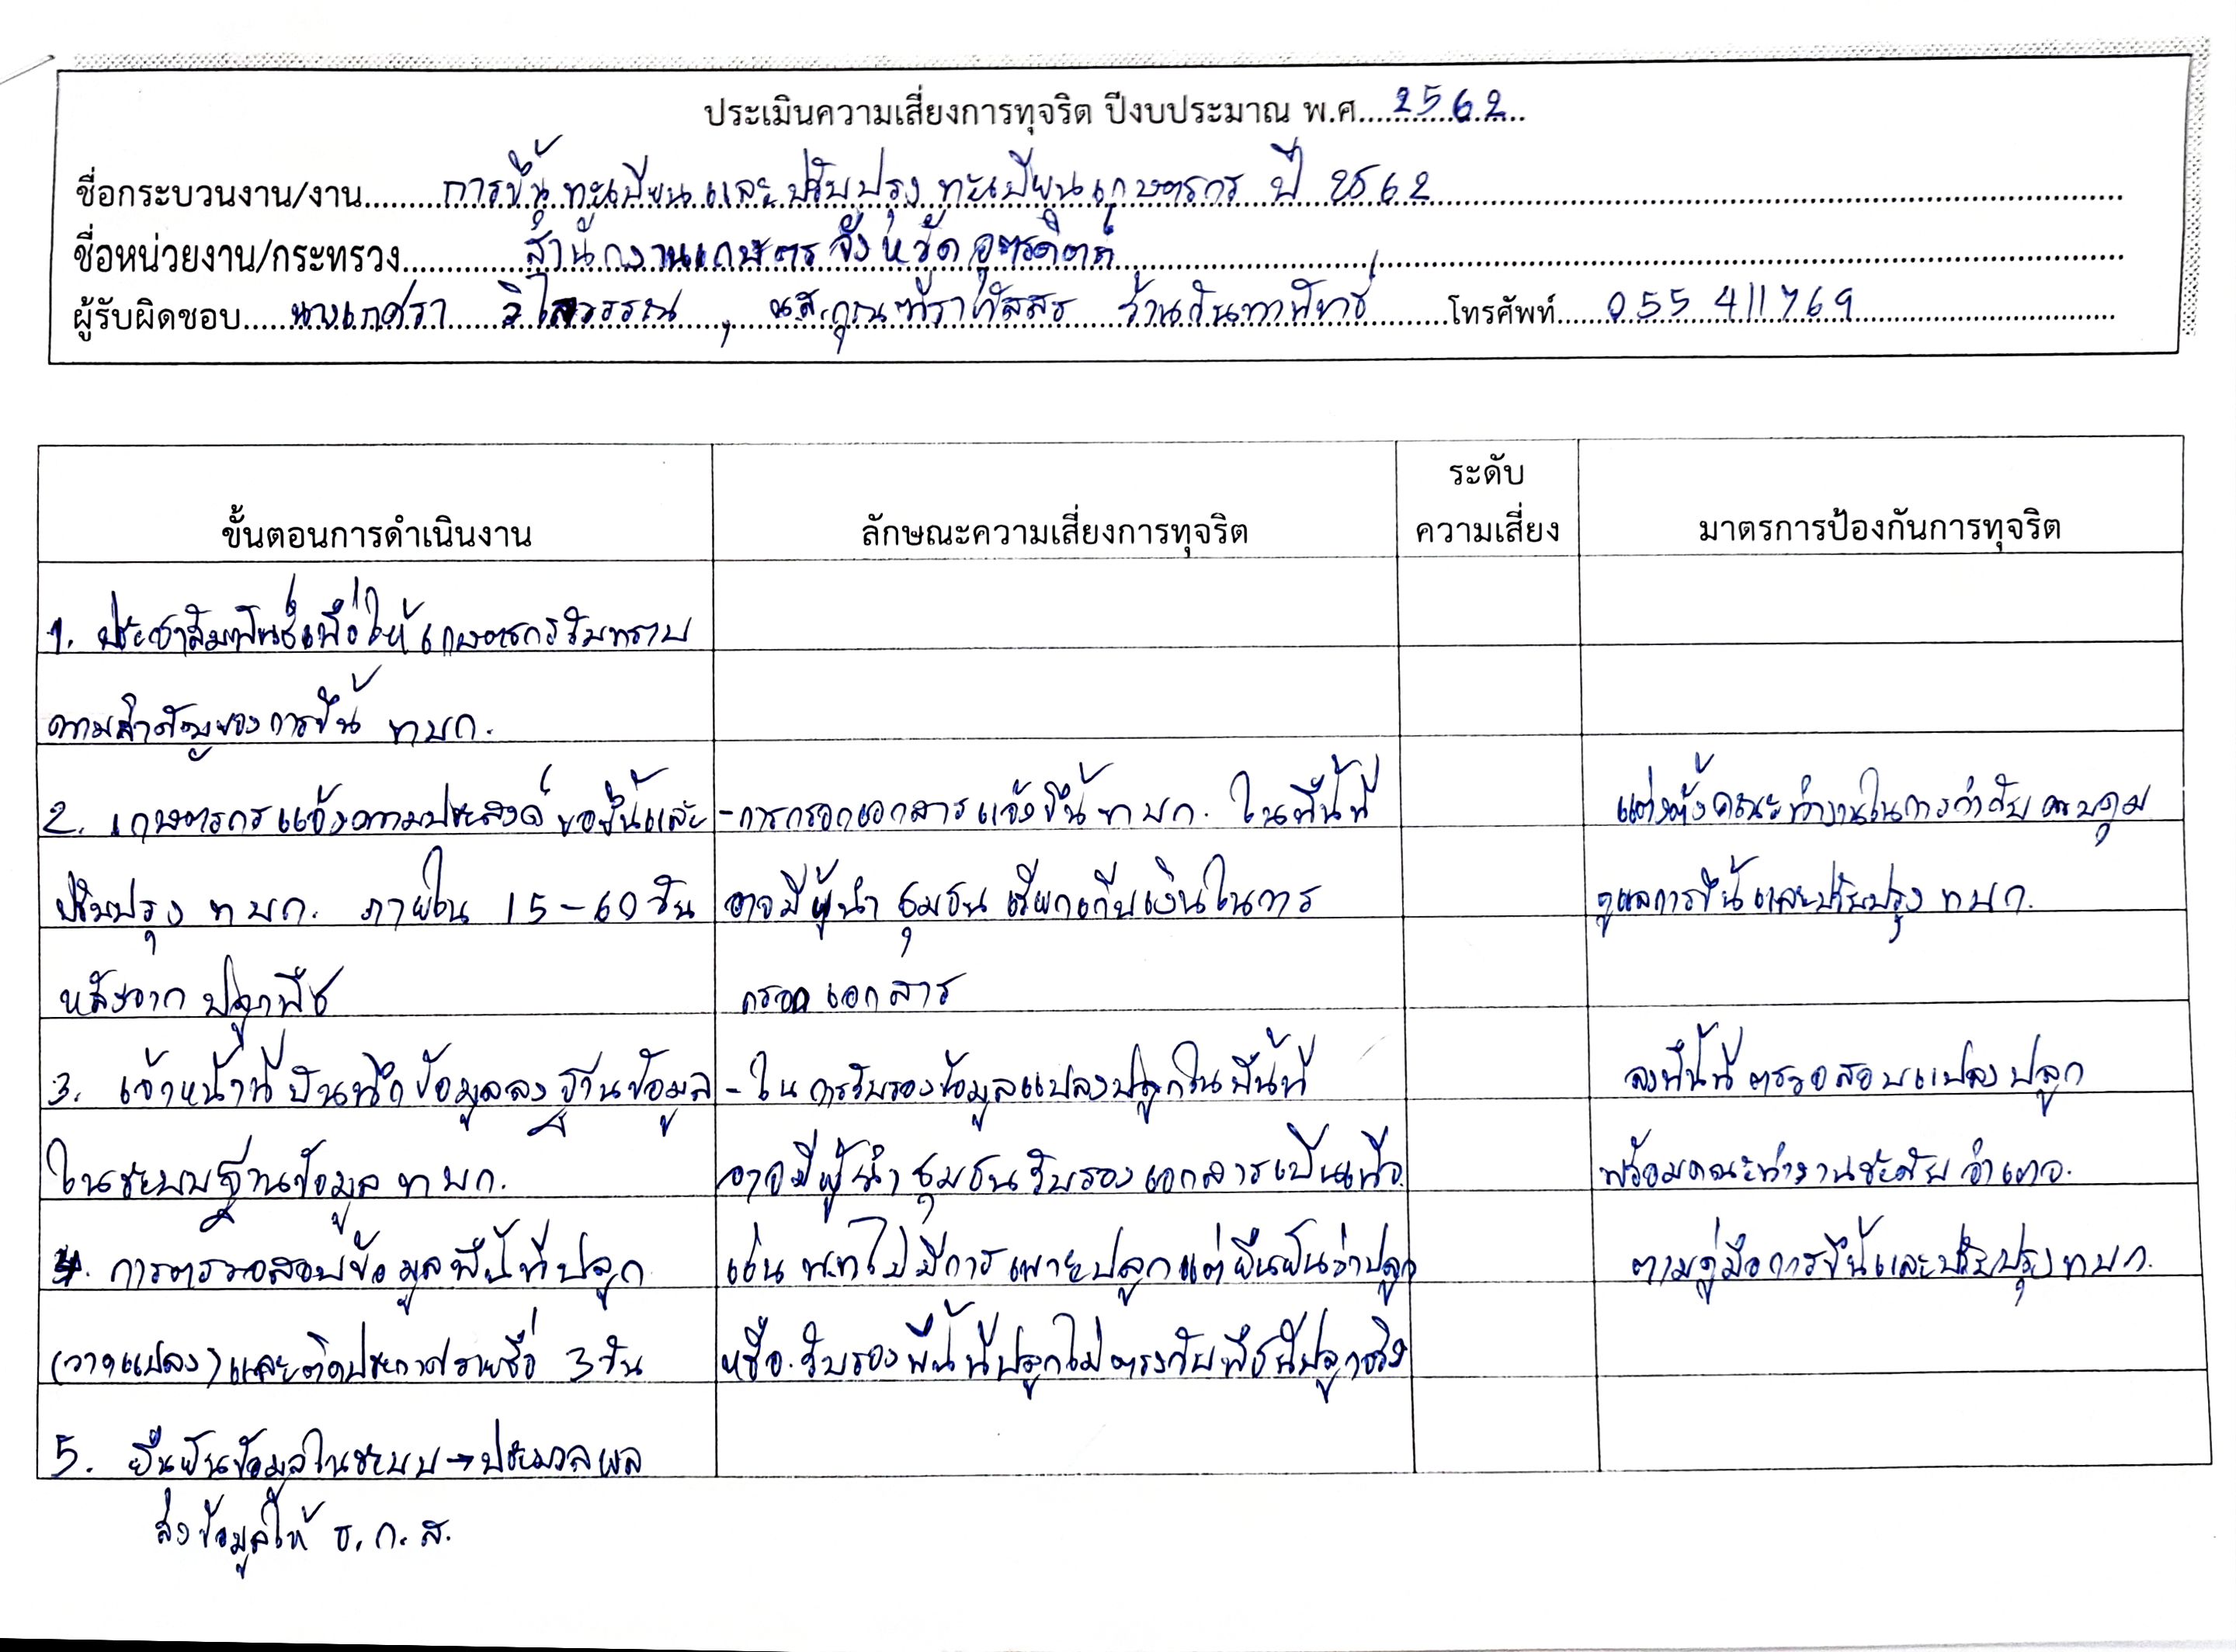 ประเมินความเสี่ยงการทุจริต ปีงบประมาณ พ.ศ....2562...
ชื่อกระบวนงาน/งาน......การขึ้นทะเบียนและปรับปรุงทะเบียนเกษตรกร ปี 2562
ชื่อหน่วยงาน/กระทรวง......สำนักงานเกษตรจังหวัดอุตรดิตถ์
ผู้รับผิดชอบ.....นางเกศรา วิไลวรรณ , น.ส. โทรศัพท์.....055 411769
ขั้นตอนการดำเนินงาน ลักษณะความเสี่ยงการทุจริต ระดับ ความเสี่ยง มาตรการป้องกันการทุจริต
1. ประชาสัมพันธ์เพื่อให้เกษตรกรรับทราบ
ความสำคัญของการขึ้น ทบก.
2. เกษตรกรแจ้งความประสงค์ขอขึ้นและ -การกรอกเอกสารแจ้งขึ้น ทบก. ในพื้นที่ แต่งตั้งคณะทำงานในการกำกับ ควบคุม
ปรับปรุง ทบก. ภายใน 15-60 วัน อาจมีผู้นำชุมชนเรียกเก็บเงินในการ ดูแลการขึ้นและปรับปรุง ทบก.
หลังจากปลูกพืช กรอกเอกสาร
3. เจ้าหน้าที่บันทึกข้อมูลลงฐานข้อมูล -ในการรับรองข้อมูลแปลงปลูกในพื้นที่ ลงพื้นที่ตรวจสอบแปลงปลูก
ในระบบฐานข้อมูล ทบก. อาจมีผู้นำชุมชนรับรองเอกสารเป็นเท็จ พร้อมคณะทำงานระดับอำเภอ.
4. การตรวจสอบข้อมูลพื้นที่ปลูก เช่น พ.ท.ไม่มีการเพาะปลูกแต่ยืนยันว่าปลูก ตามคู่มือการขึ้นและปรับปรุง ทบก.
(วาดแปลง) และติดประกาศรายชื่อ 3 วัน หรือ.รับรองพื้นที่ปลูกไม่ตรงกับพืชที่ปลูกจริง
5. ยืนยันข้อมูลในระบบ → ประมวลผล
ส่งข้อมูลให้ ธ.ก.ส.